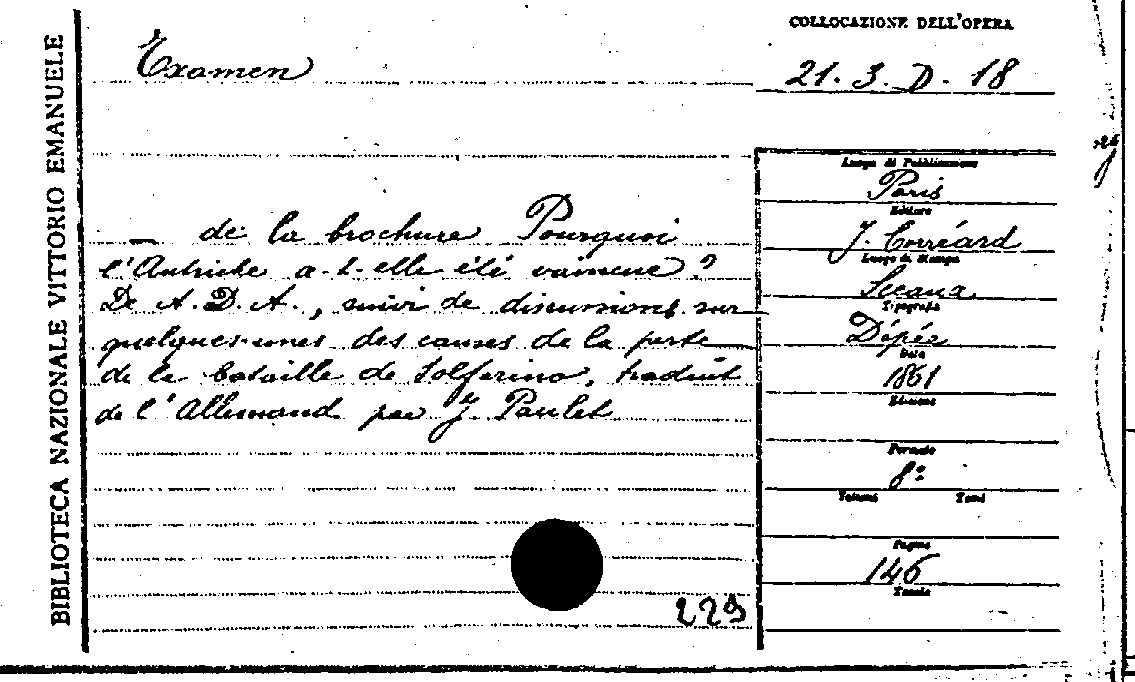 BIBLIOTECA NAZIONALE VITTORIO EMANUELE
COLLOCAZIONE DELL'OPERA
Examen
21. 3. D. 18
— de la brochure Pourquoi
l'Autriche a-t-elle été vaincue?
De A. D. A., suivi de discussions sur
quelques-unes des causes de la perte
de la bataille de Solferino, traduit
de l'Allemand par J. Paulet
229
Luogo di Pubblicazione
Paris
Editore
J. Corréard
Luogo di Stampa
Sceaux
Tipografia
Dépée
Data
1861
Edizione
Formato
8º
Volumi Tomi
Pagine
146
Tavole